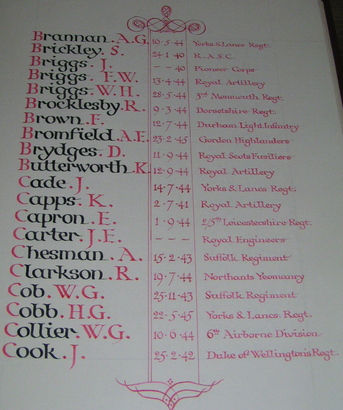 Brannan. A.G. 10·5·44 Yorks & Lancs Regt.
Brickley. S. 24·1·40 R.A.S.C.
Briggs. J. - - 40 Pioneer Corps
Briggs. F.W. 13·4·44 Royal Artillery
Briggs. W.H. 28·5·44 3rd Monmouth Regt.
Brocklesby. R. 9·3·44 Dorsetshire Regt.
Brown. F. 12·7·44 Durham Light Infantry
Bromfield. A.E. 23·2·45 Gordon Highlanders
Brydges. D. 11·9·44 Royal Scots Fusiliers
Butterworth. K. 12·9·44 Royal Artillery
Cade. J. 14·7·44 Yorks & Lancs Regt.
Capps. K. 2·7·41 Royal Artillery
Capron. E. 1·9·44 2/5th Leicestershire Regt.
Carter. J.E. - - - Royal Engineers
Chesman. A. 15·2·43 Suffolk Regiment
Clarkson. R. 19·7·44 Northants Yeomanry
Cob. W.G. 25·11·43 Suffolk Regiment
Cobb. H.G. 22·5·45 Yorks & Lancs. Regt.
Collier. W.G. 10·6·44 6th Airborne Division
Cook. J. 25·2·42 Duke of Wellington's Regt.